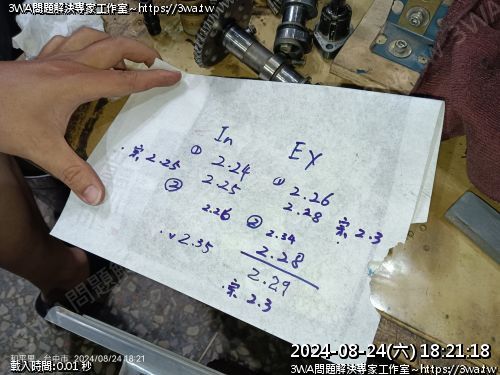 3WA問題解決專家工作室~https://3wa.tw
3WA問題解決專家工作室~https://3wa.tw
In EX
① 2.24
2.25
. 2.25
②
① 2.26
2.28
2.3
2.26
② 2.34
2.28
2.35
2.29
2.3
和平里, 台中市, 2024/08/24 18:21
載入時間:0.01 秒
2024-08-24(六) 18:21:18
3WA問題解決專家工作室~https://3wa.tw